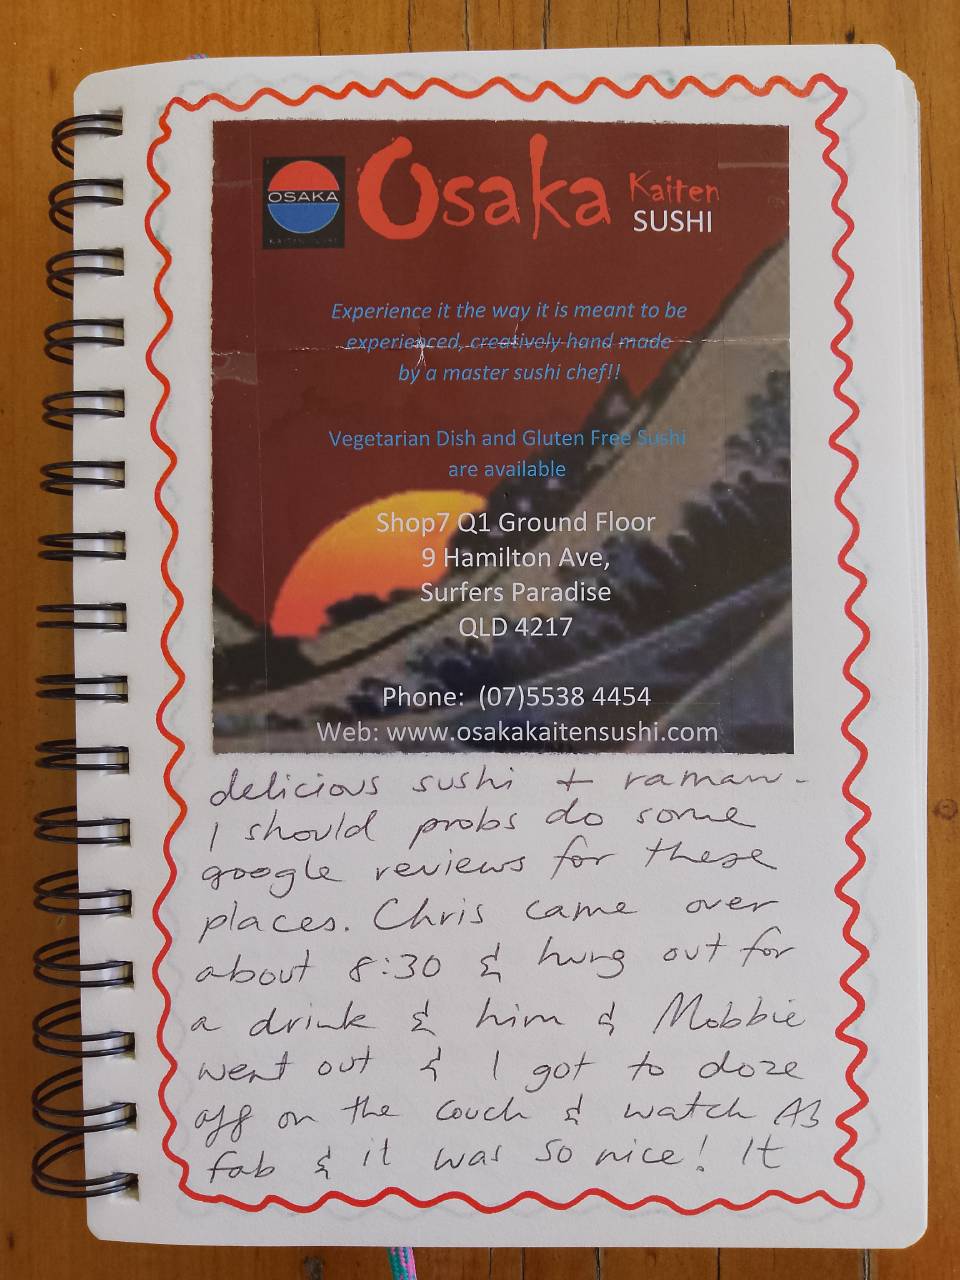 OSAKA
KAITEN SUSHI
Osaka Kaiten
SUSHI
Experience it the way it is meant to be
experienced, creatively hand made
by a master sushi chef!!
Vegetarian Dish and Gluten Free Sushi
are available
Shop7 Q1 Ground Floor
9 Hamilton Ave,
Surfers Paradise
QLD 4217
Phone: (07)5538 4454
Web: www.osakakaitensushi.com
delicious sushi + raman.
I should probs do some
google reviews for these
places. Chris came over
about 8:30 & hung out for
a drink & him & Mobbie
went out & I got to doze
off on the couch & watch AB
fab & it was so nice! It